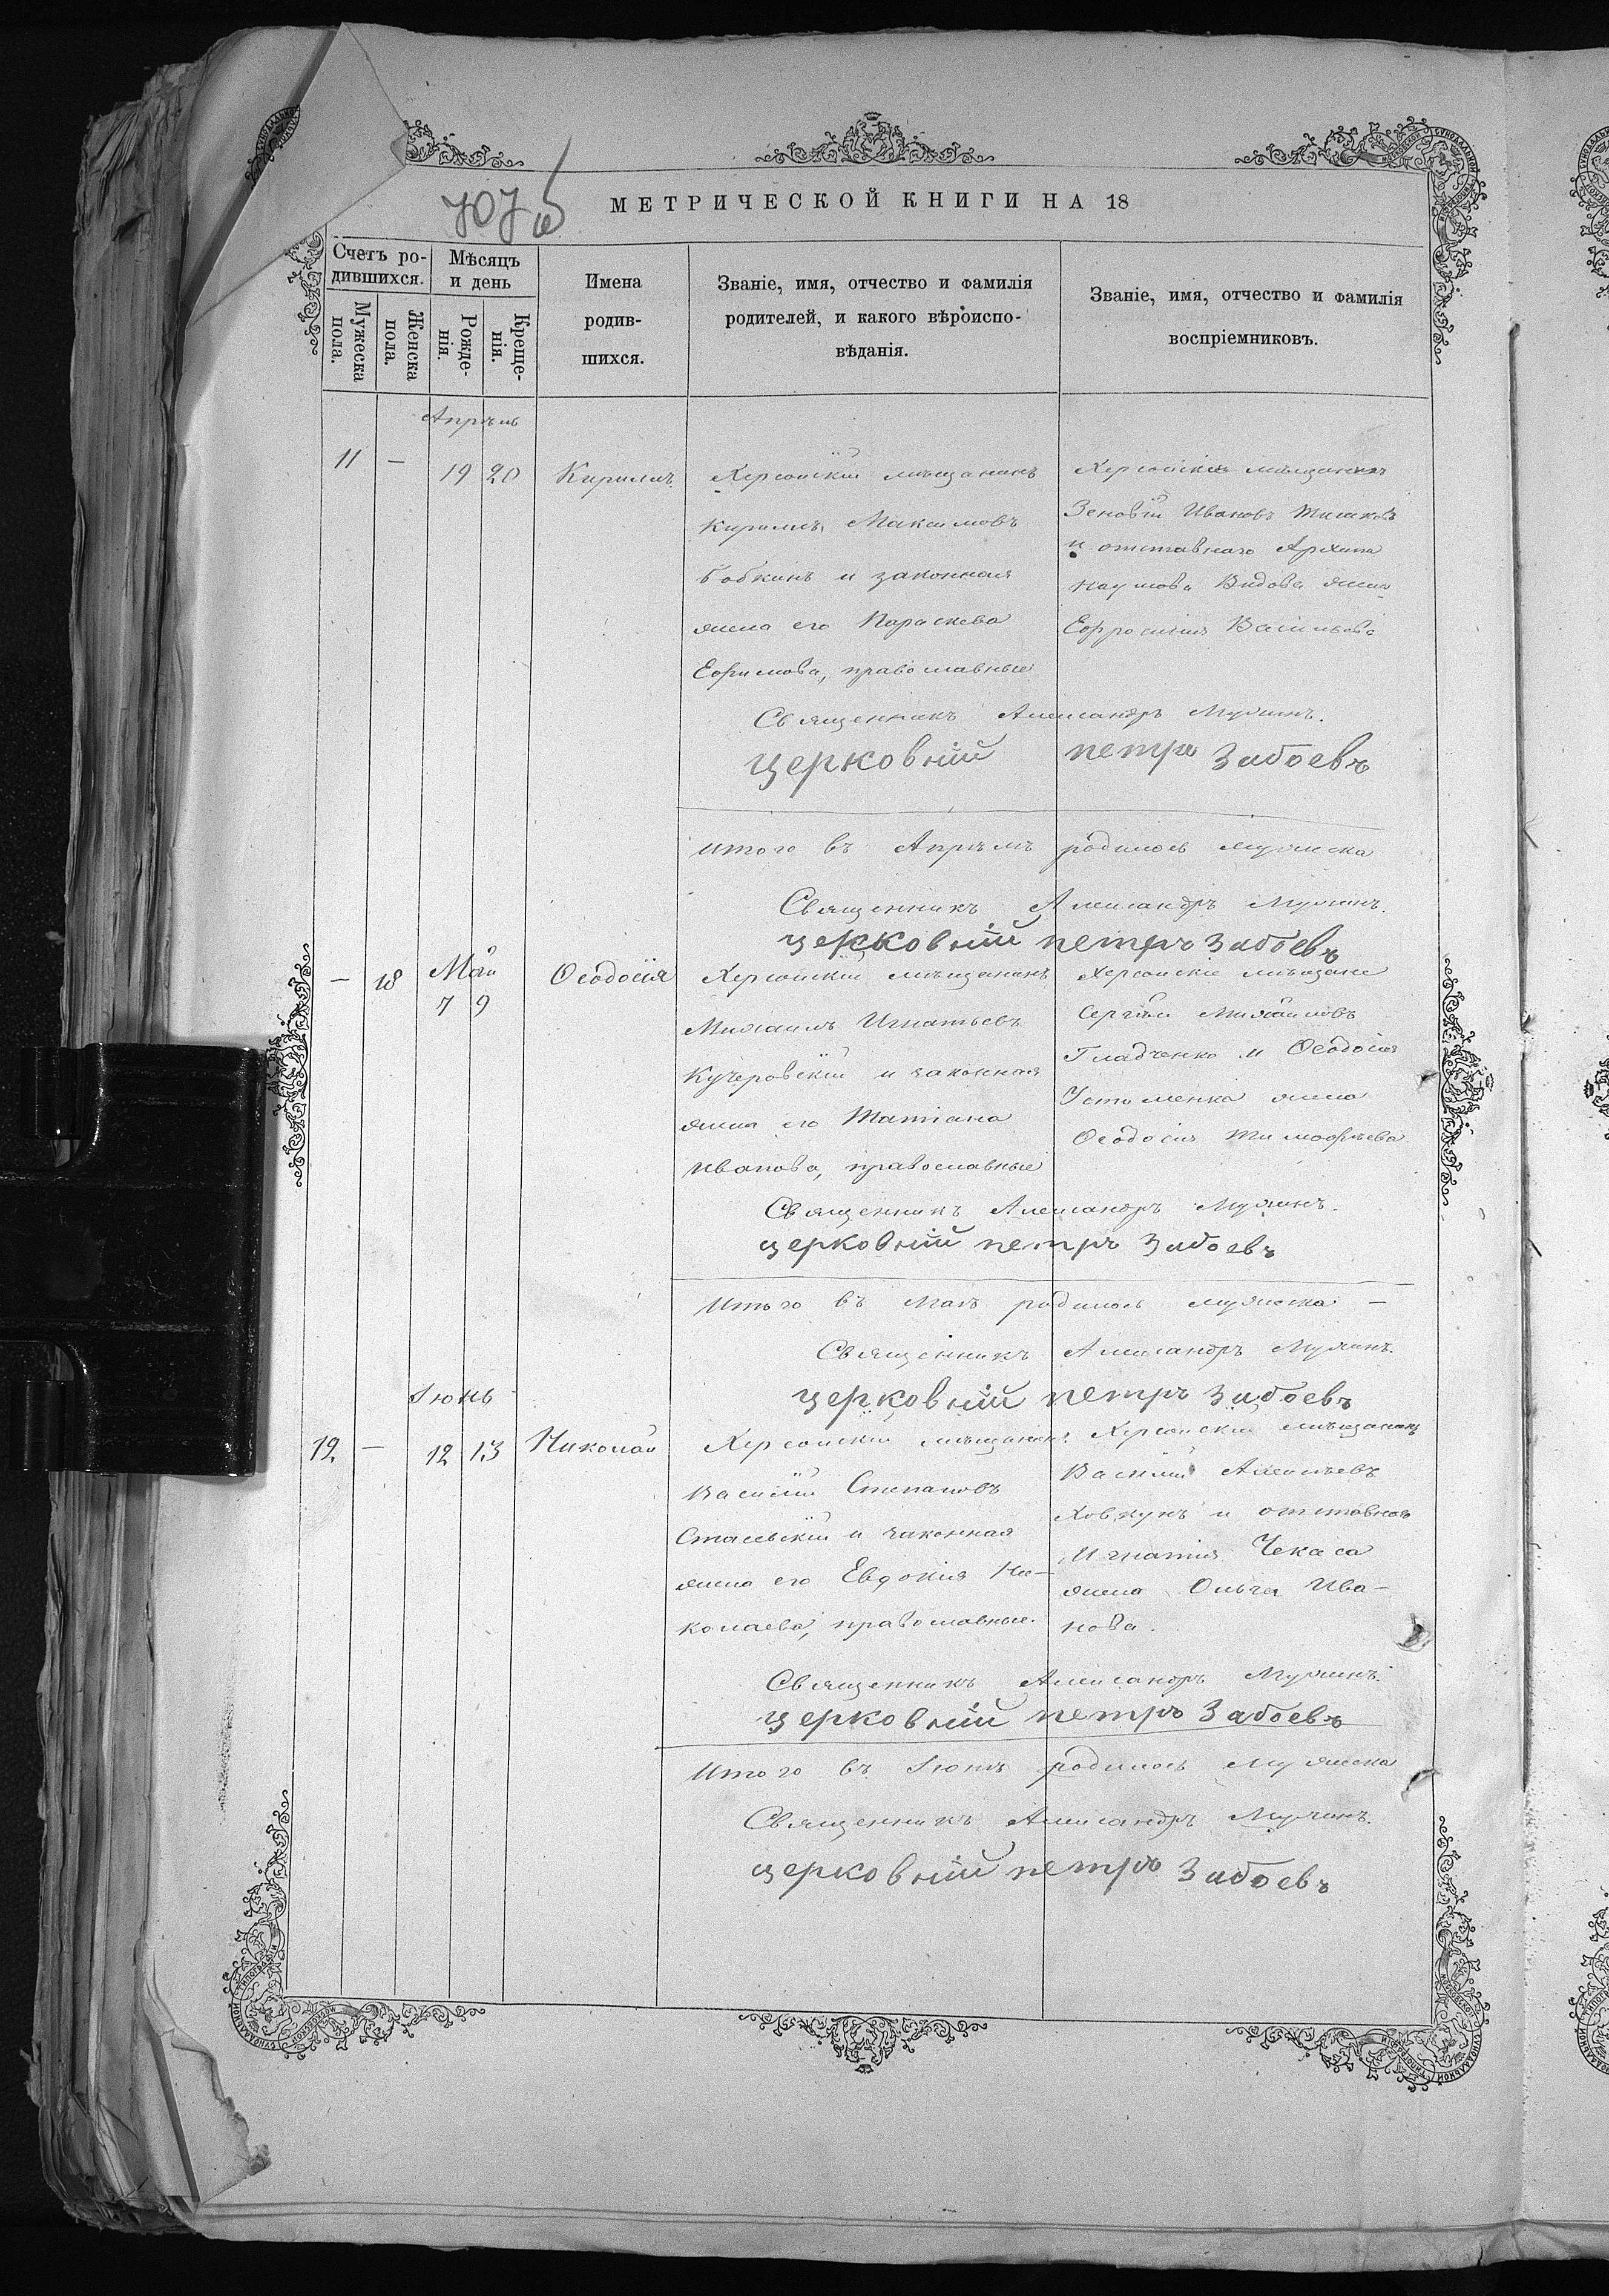 707 об
МЕТРИЧЕСКОЙ КНИГИ НА 18
Счетъ ро-
дившихся.
Мужеска
пола.
Женска
пола.
Мѣсяцъ
и день
Рожде-
нія.
Креще-
нія.
Имена
родив-
шихся.
Званіе, имя, отчество и фамилія
родителей, и какого вѣроиспо-
вѣданія.
Званіе, имя, отчество и фамилія
воспріемниковъ.
Апрѣль
11 — 19 20 Кириллъ
Херсонскій мѣщанинъ
Кириллъ Максимовъ
Бобкинъ и законная
жена его Параскева
Ефимова, православные
Херсонскій мѣщанинъ
Зеновій Ивановъ
и отставнаго Архипа
Наумова Видова жена
Ефросинія Васильева
Священникъ Александръ
церковній петръ Забоевъ
Итого въ Апрѣлѣ родилось мужеска
Священникъ Александръ
церковній петръ Забоевъ
Май
— 18 7 9 Ѳеодосія
Херсонскій мѣщанинъ
Михаилъ Игнатьевъ
Кучеровскій и законная
жена его Татіана
Иванова, православные
Херсонскіе мѣщане
Сергій Михайловъ
Гладченко и Ѳеодосія
Устименка жена
Ѳеодосія Тимофѣева
Священникъ Александръ
церковній петръ Забоевъ
Итого въ Маѣ родилось мужеска —
Священникъ Александръ
церковній петръ Забоевъ
Іюнь
12 — 12 13 Николай
Херсонскій мѣщанинъ
Василій Степановъ
Стасевскій и законная
жена его Евдокія Ни-
колаева, православные.
Херсонскій мѣщанинъ
Василій Алексѣевъ
Ховкунъ и отставнаго
Игнатія Чекаса
жена Ольга Ива-
нова.
Священникъ Александръ
церковній петръ Забоевъ
Итого въ Іюнѣ родилось Мужеска
Священникъ Александръ
церковній петръ Забоевъ